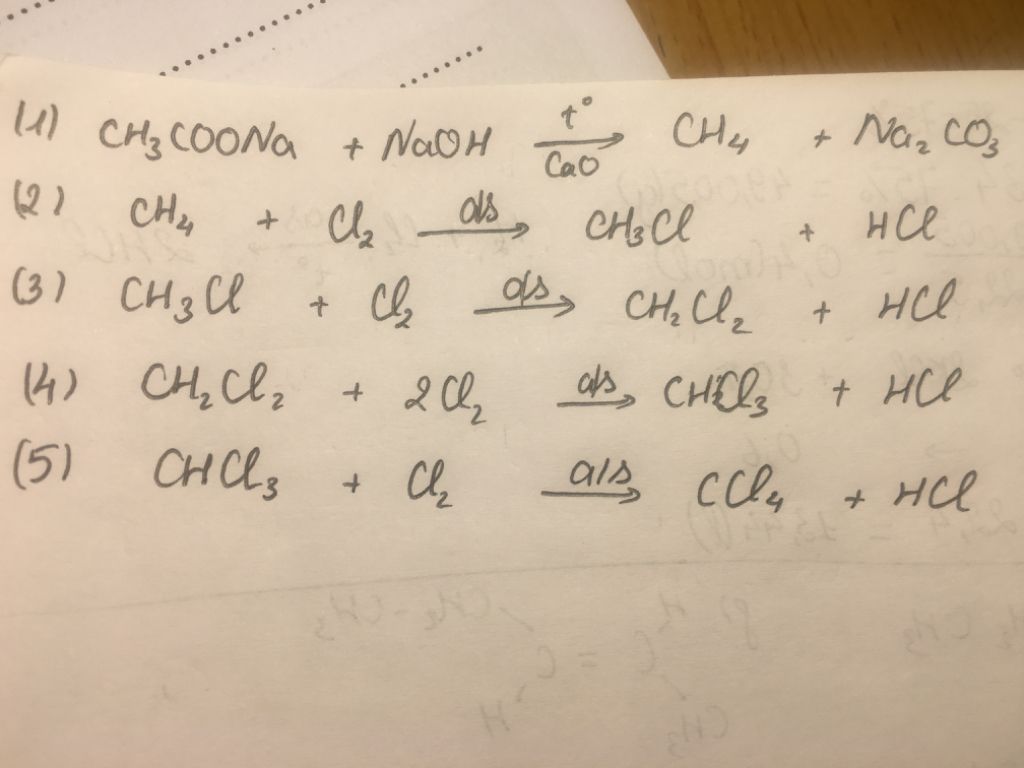 (1) CH₃COONa + NaOH →(t°, CaO) CH₄ + Na₂CO₃
(2) CH₄ + Cl₂ →(a/s) CH₃Cl + HCl
(3) CH₃Cl + Cl₂ →(a/s) CH₂Cl₂ + HCl
(4) CH₂Cl₂ + 2Cl₂ →(a/s) CHCl₃ + HCl
(5) CHCl₃ + Cl₂ →(a/s) CCl₄ + HCl